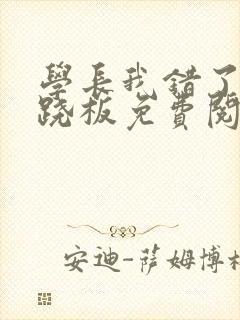 學長我錯了
跷板免費閱
安迪-萨姆博格